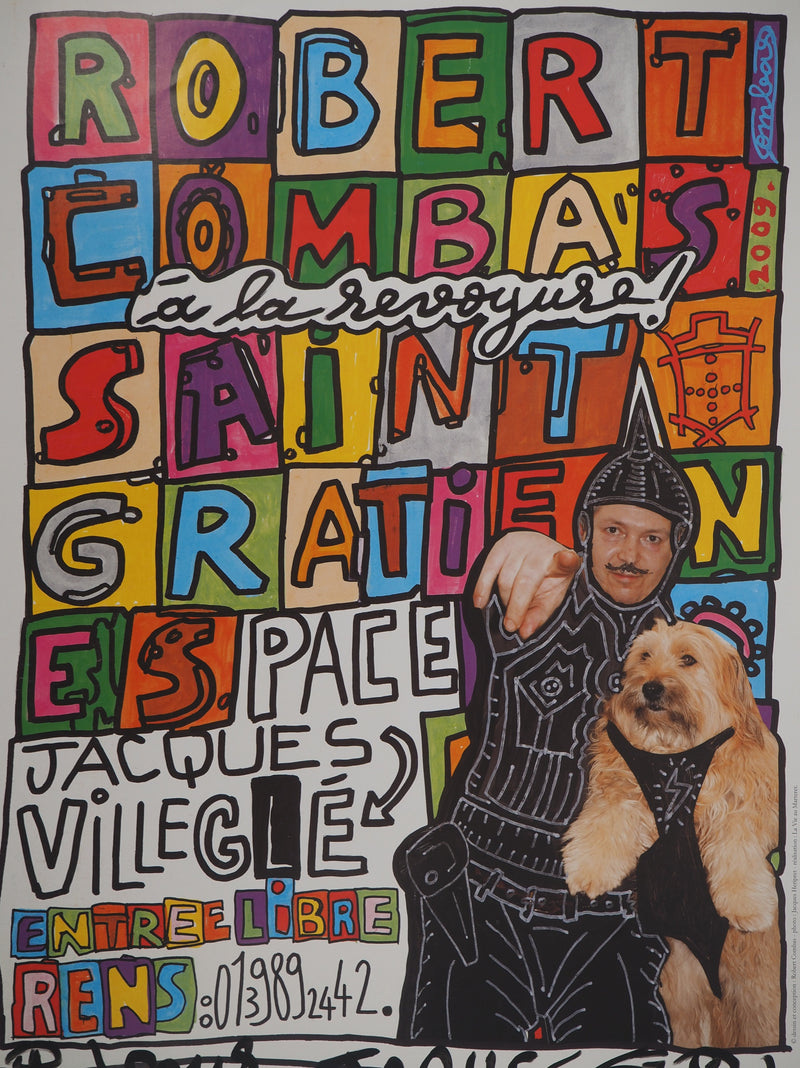 ROBERT
Combas
COMBAS
2009.
à la revoyure!
SAINT
GRATIEN
ESPACE
JACQUES
VILLEGLÉ
ENTREE LIBRE
RENS : 0139892442.
© dessin et conception : Robert Combas - photo : Jacques Hospers - réalisation : La Vie au Marteret.